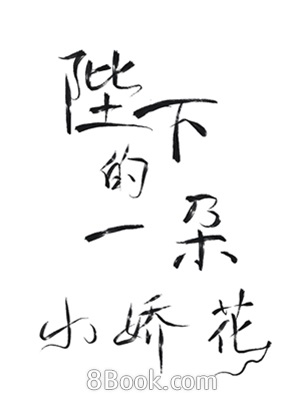 陛下
的
一朵
小娇花
8Book.com